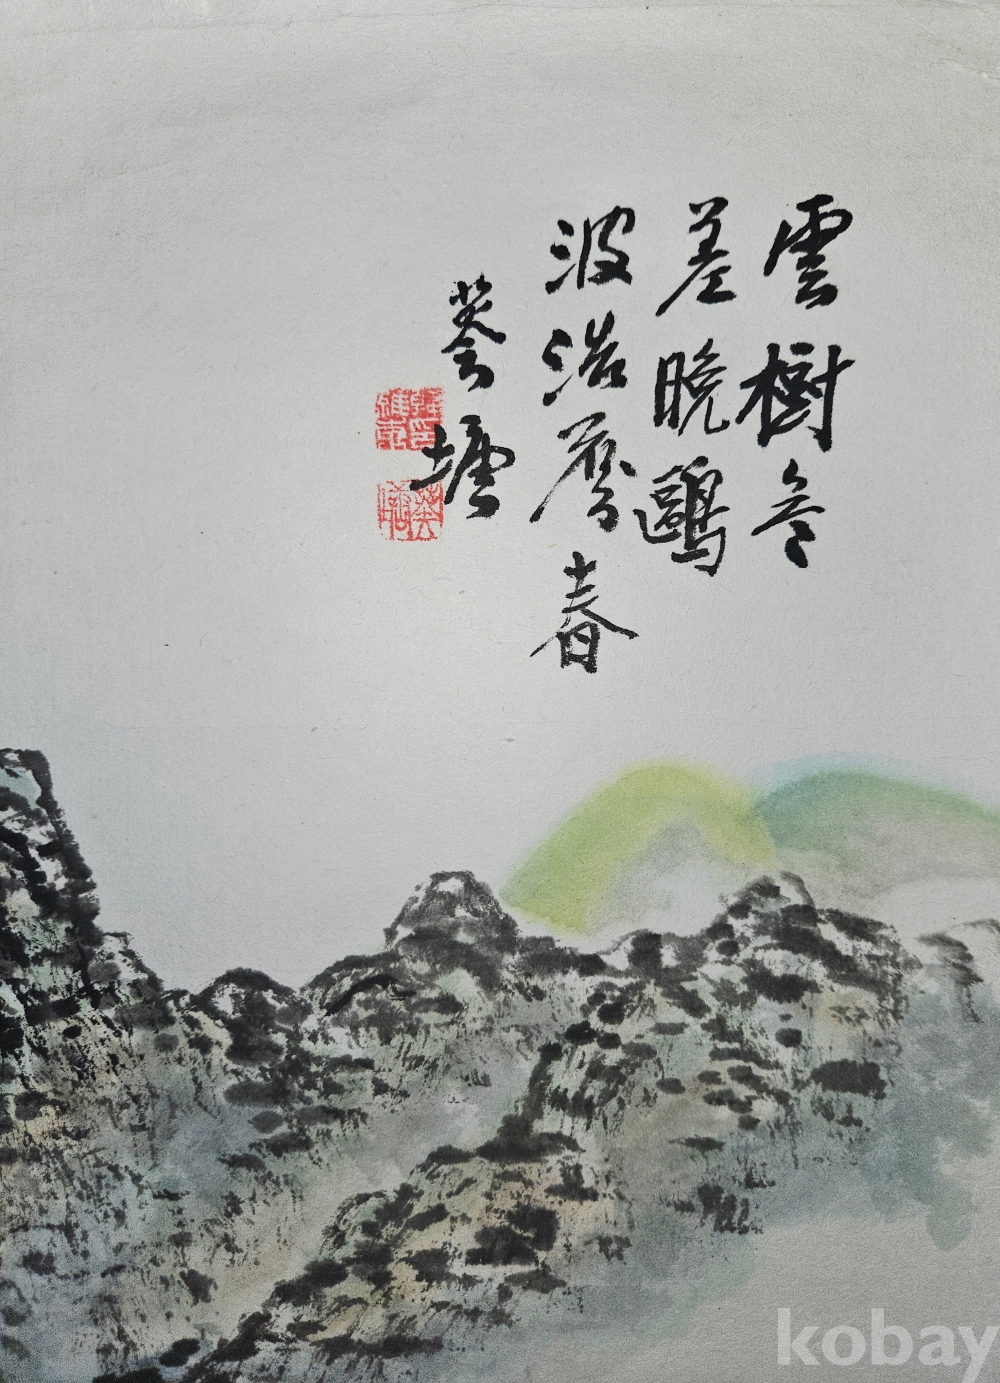 雲樹參
差晚鷗
波浩蕩春
塘
kobay